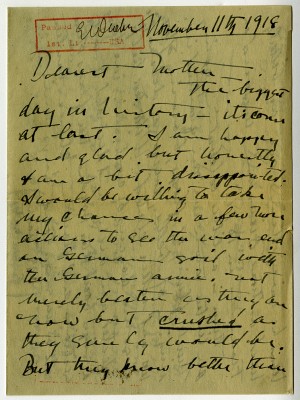 Passed
November 11th 1918
Dearest Mother
The biggest
day in history - its come
at last. I am happy
and glad but honestly
I am a bit disappointed.
I would be willing to take
my chances in a few more
actions to see the war end
on German soil with
the German armies not
merely beaten as they are
now but crushed as
they surely would be.
But they know better than